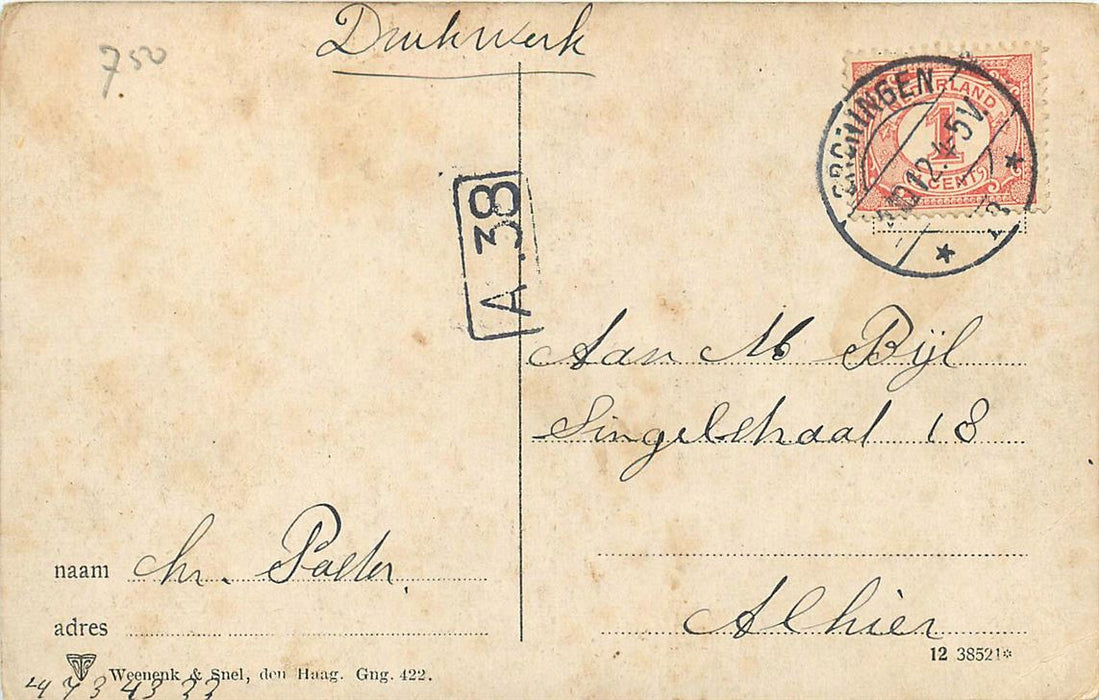 Drukwerk
7.50
NEDERLAND
1
CENT
GRONINGEN
10.12.4-5V.
A.38
Aan M Bijl
Singelstraat 18
Alhier
naam Chr. Poelter
adres
Weenenk & Snel, den Haag. Gng. 422.
12 38521*